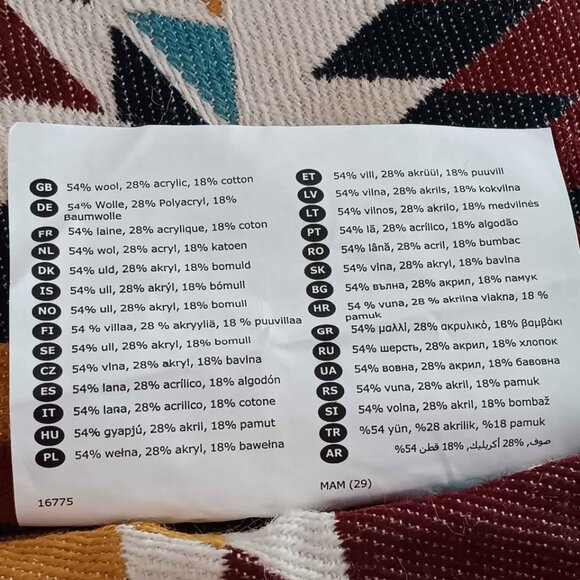 GB 54% wool, 28% acrylic, 18% cotton
DE 54% Wolle, 28% Polyacryl, 18%
Baumwolle
FR 54% laine, 28% acrylique, 18% coton
NL 54% wol, 28% acryl, 18% katoen
DK 54% uld, 28% akryl, 18% bomuld
IS 54% ull, 28% akrýl, 18% bómull
NO 54% ull, 28% akryl, 18% bomull
FI 54 % villaa, 28 % akryyliä, 18 % puuvillaa
SE 54% ull, 28% akryl, 18% bomull
CZ 54% vlna, 28% akryl, 18% bavlna
ES 54% lana, 28% acrílico, 18% algodón
IT 54% lana, 28% acrilico, 18% cotone
HU 54% gyapjú, 28% akril, 18% pamut
PL 54% wełna, 28% akryl, 18% bawełna
16775
ET 54% vill, 28% akrüül, 18% puuvill
LV 54% vilna, 28% akrils, 18% kokvilna
LT 54% vilnos, 28% akrilo, 18% medvilnės
PT 54% lã, 28% acrílico, 18% algodão
RO 54% lână, 28% acril, 18% bumbac
SK 54% vlna, 28% akryl, 18% bavlna
BG 54% вълна, 28% акрил, 18% памук
HR 54 % vuna, 28 % akrilna vlakna, 18 %
pamuk
GR 54% μαλλί, 28% ακρυλικό, 18% βαμβάκι
RU 54% шерсть, 28% акрил, 18% хлопок
UA 54% вовна, 28% акрил, 18% бавовна
RS 54% vuna, 28% akril, 18% pamuk
SI 54% volna, 28% akril, 18% bombaž
TR %54 yün, %28 akrilik, %18 pamuk
AR صوف, 28% أكريليك, 18% قطن 54%
MAM (29)